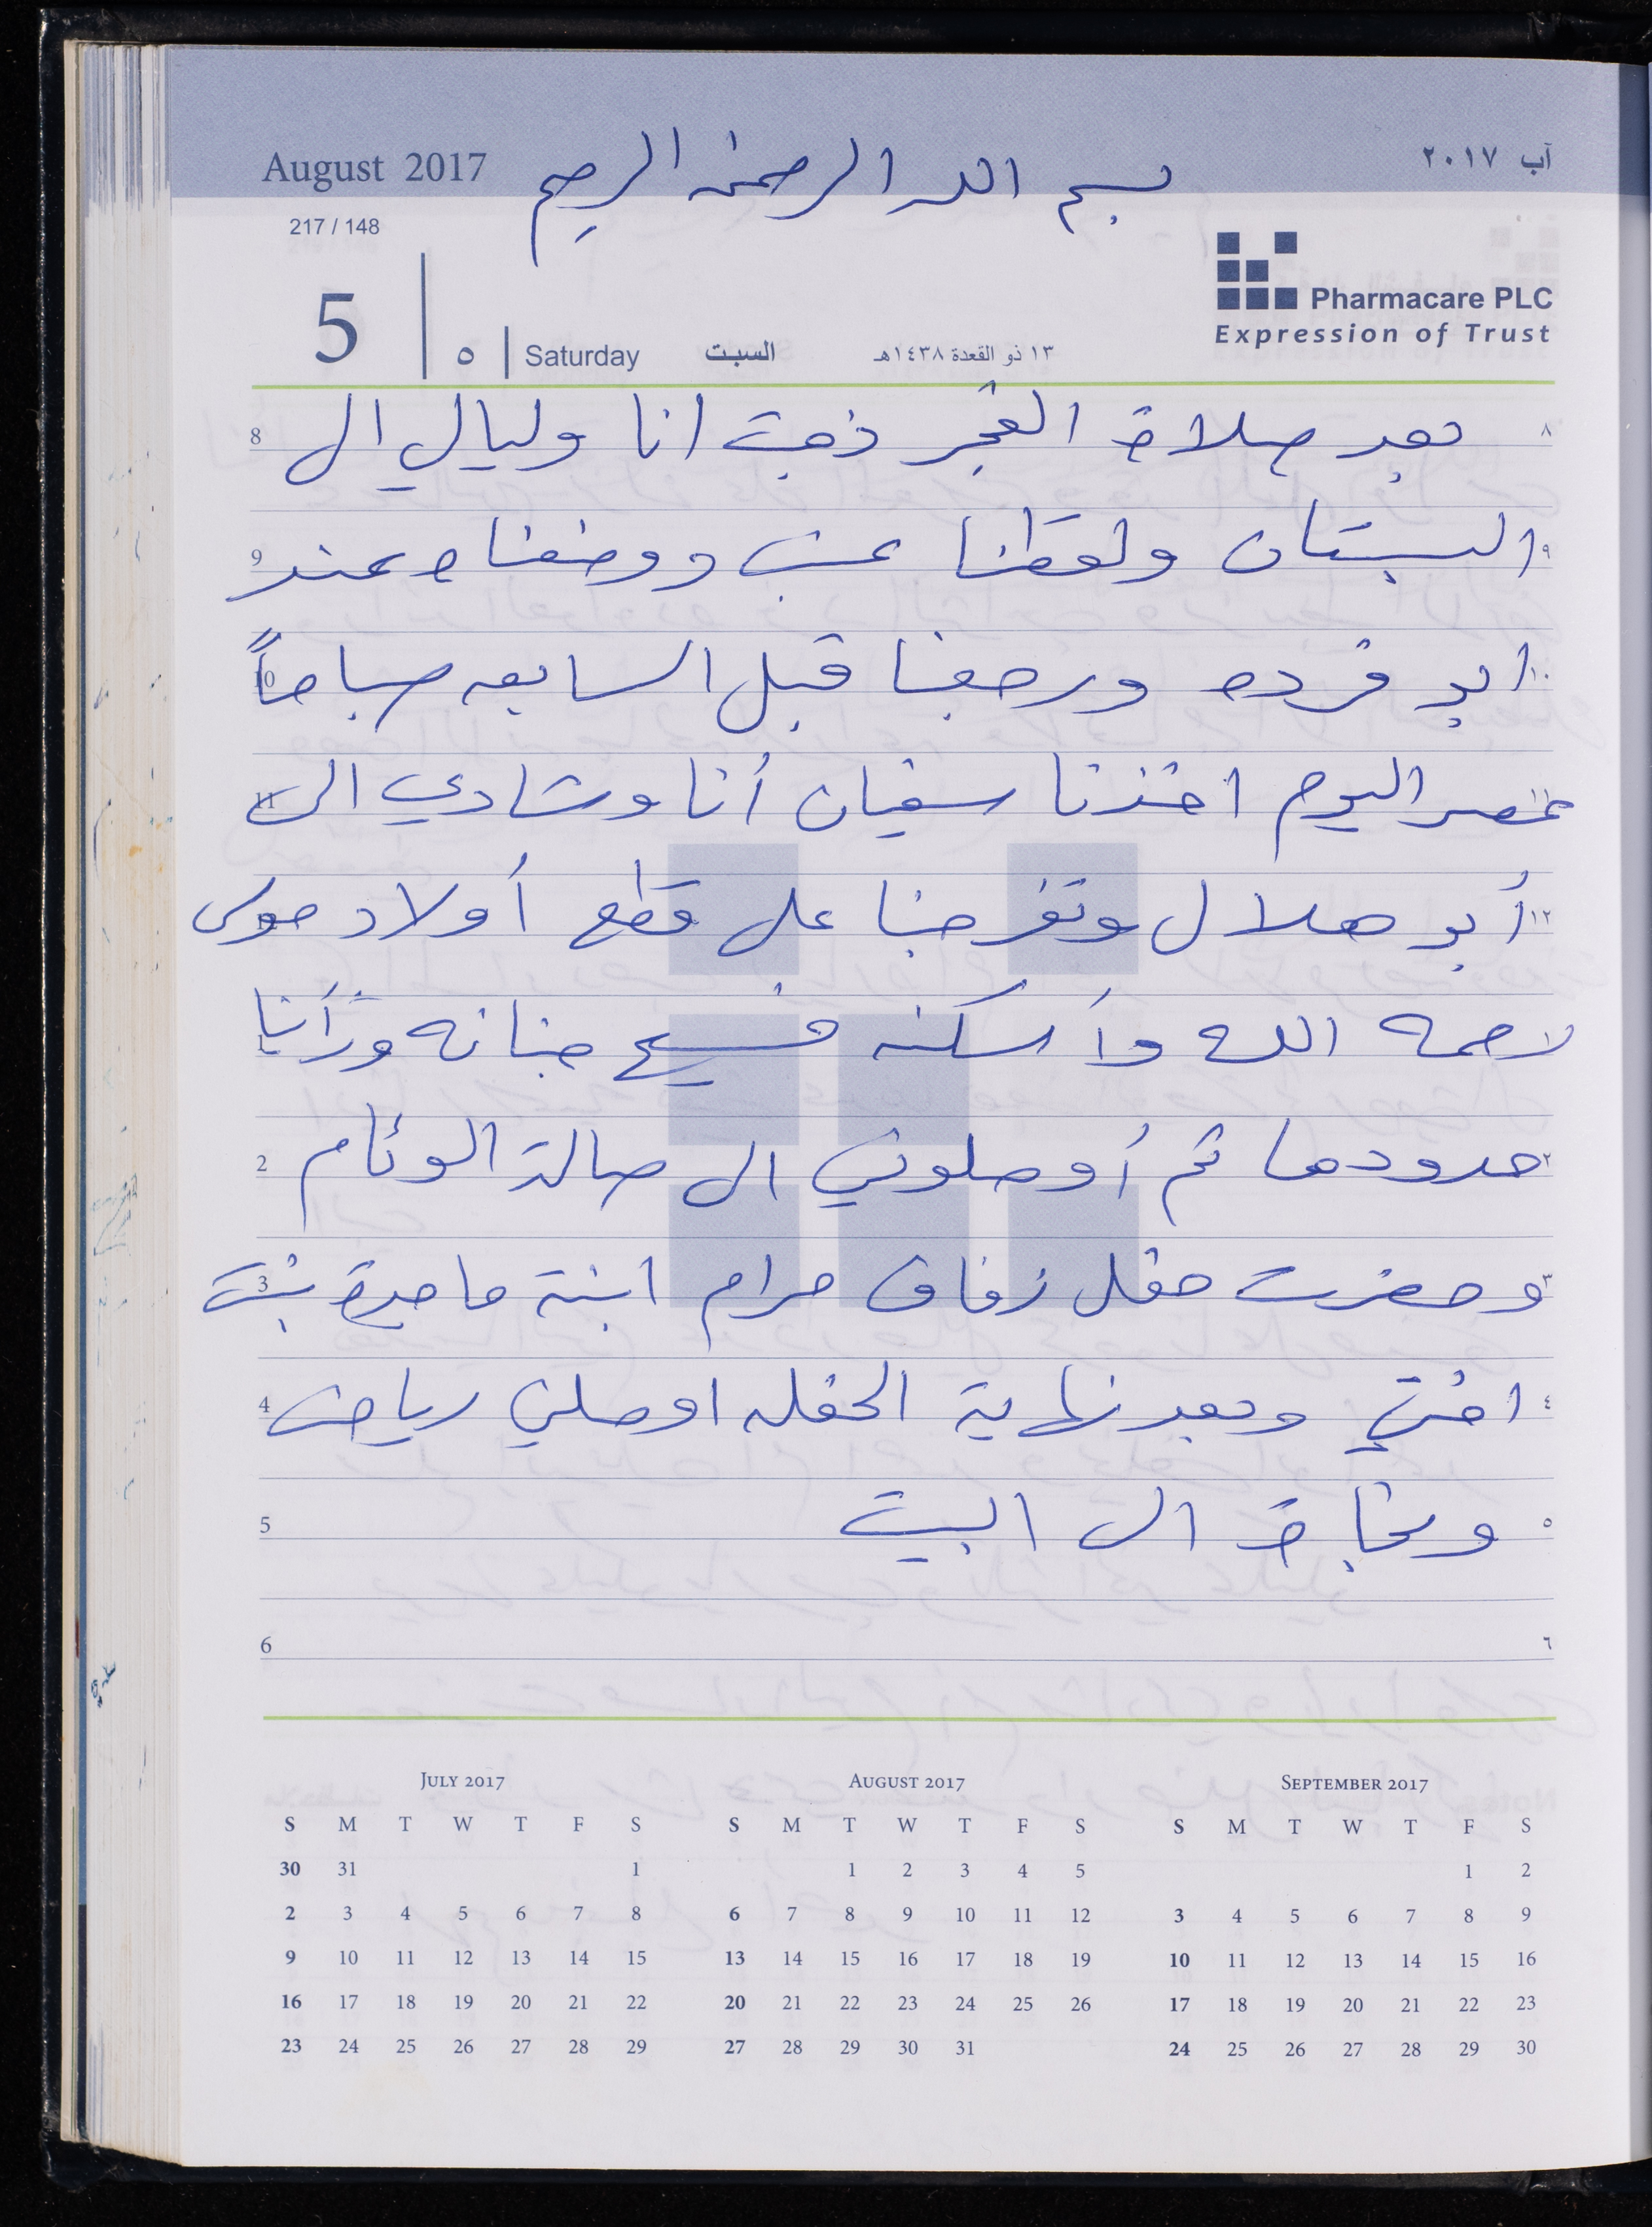 August 2017
بسم الله الرحمن الرحيم
آب ٢٠١٧
217 / 148
Pharmacare PLC
Expression of Trust
5 | ٥ | Saturday السبت ١٣ ذو القعدة ١٤٣٨هـ
8 بعد صلاة الفجر ذهبت انا وليالي الى ٨
9 البستان ولقطنا عنب ووضعناه عند ٩
10 ابو فرده ورجعنا قبل السابعه صباحاً ١٠
11 عصر اليوم اخذنا سفيان أنا وشادي الى
أبو هلال وتفرجنا على قطع أولاد موسى ١٢
رحمه الله وأسكنه فسيح جنانه ورأينا
2 حدودها ثم أوصلوني الى صالة الوئام ٢
3 وحضرت حفل زفاف مرام ابنة ماجدة بنت ٣
4 اختي وبعد نهاية الحفله اوصلني رياض ٤
5 ونجاة الى البيت ٥
6 ٦
July 2017
S M T W T F S
30 31 1
2 3 4 5 6 7 8
9 10 11 12 13 14 15
16 17 18 19 20 21 22
23 24 25 26 27 28 29
August 2017
S M T W T F S
1 2 3 4 5
6 7 8 9 10 11 12
13 14 15 16 17 18 19
20 21 22 23 24 25 26
27 28 29 30 31
September 2017
S M T W T F S
1 2
3 4 5 6 7 8 9
10 11 12 13 14 15 16
17 18 19 20 21 22 23
24 25 26 27 28 29 30